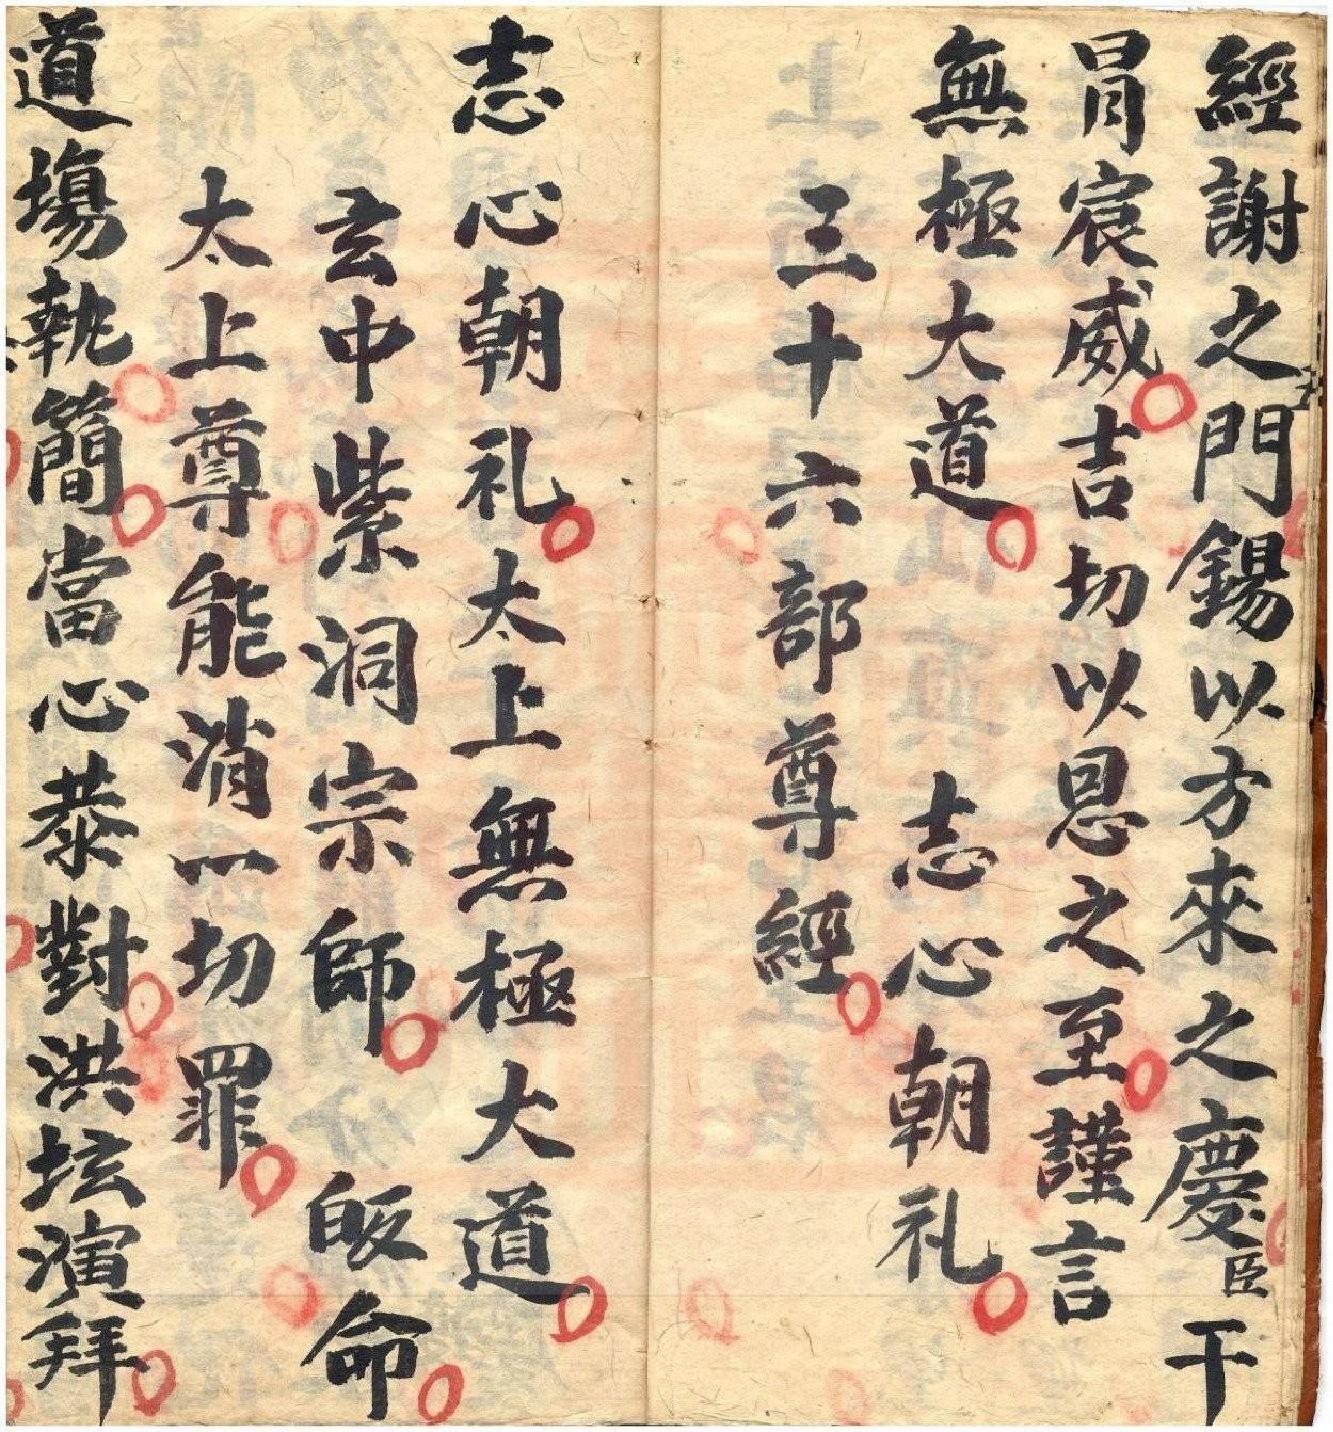 經謝之門錫以方來之慶臣干
冐宸威吉切以恩之至謹言
無極大道　志心朝礼
三十六部尊經
志心朝礼太上無極大道
玄中紫洞宗師　皈命
太上尊能消一切罪
道塲執簡當心恭對洪坛演拜